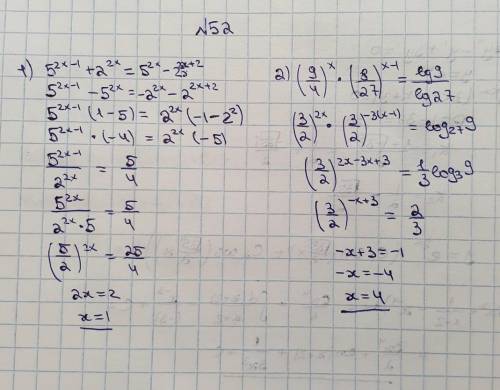 №52
1) 5^{2x-1} + 2^{2x} = 5^{2x} - 2^{2x+2}
5^{2x-1} - 5^{2x} = -2^{2x} - 2^{2x+2}
5^{2x-1} (1-5) = 2^{2x} (-1-2^2)
5^{2x-1} · (-4) = 2^{2x} (-5)
5^{2x-1}/2^{2x} = 5/4
5^{2x}/(2^{2x} · 5) = 5/4
(5/2)^{2x} = 25/4
2x = 2
x = 1
2) (9/4)^x · (8/27)^{x-1} = lg9/lg27
(3/2)^{2x} · (3/2)^{-3(x-1)} = log_{27}9
(3/2)^{2x-3x+3} = 1/3 log_3 9
(3/2)^{-x+3} = 2/3
-x+3 = -1
-x = -4
x = 4